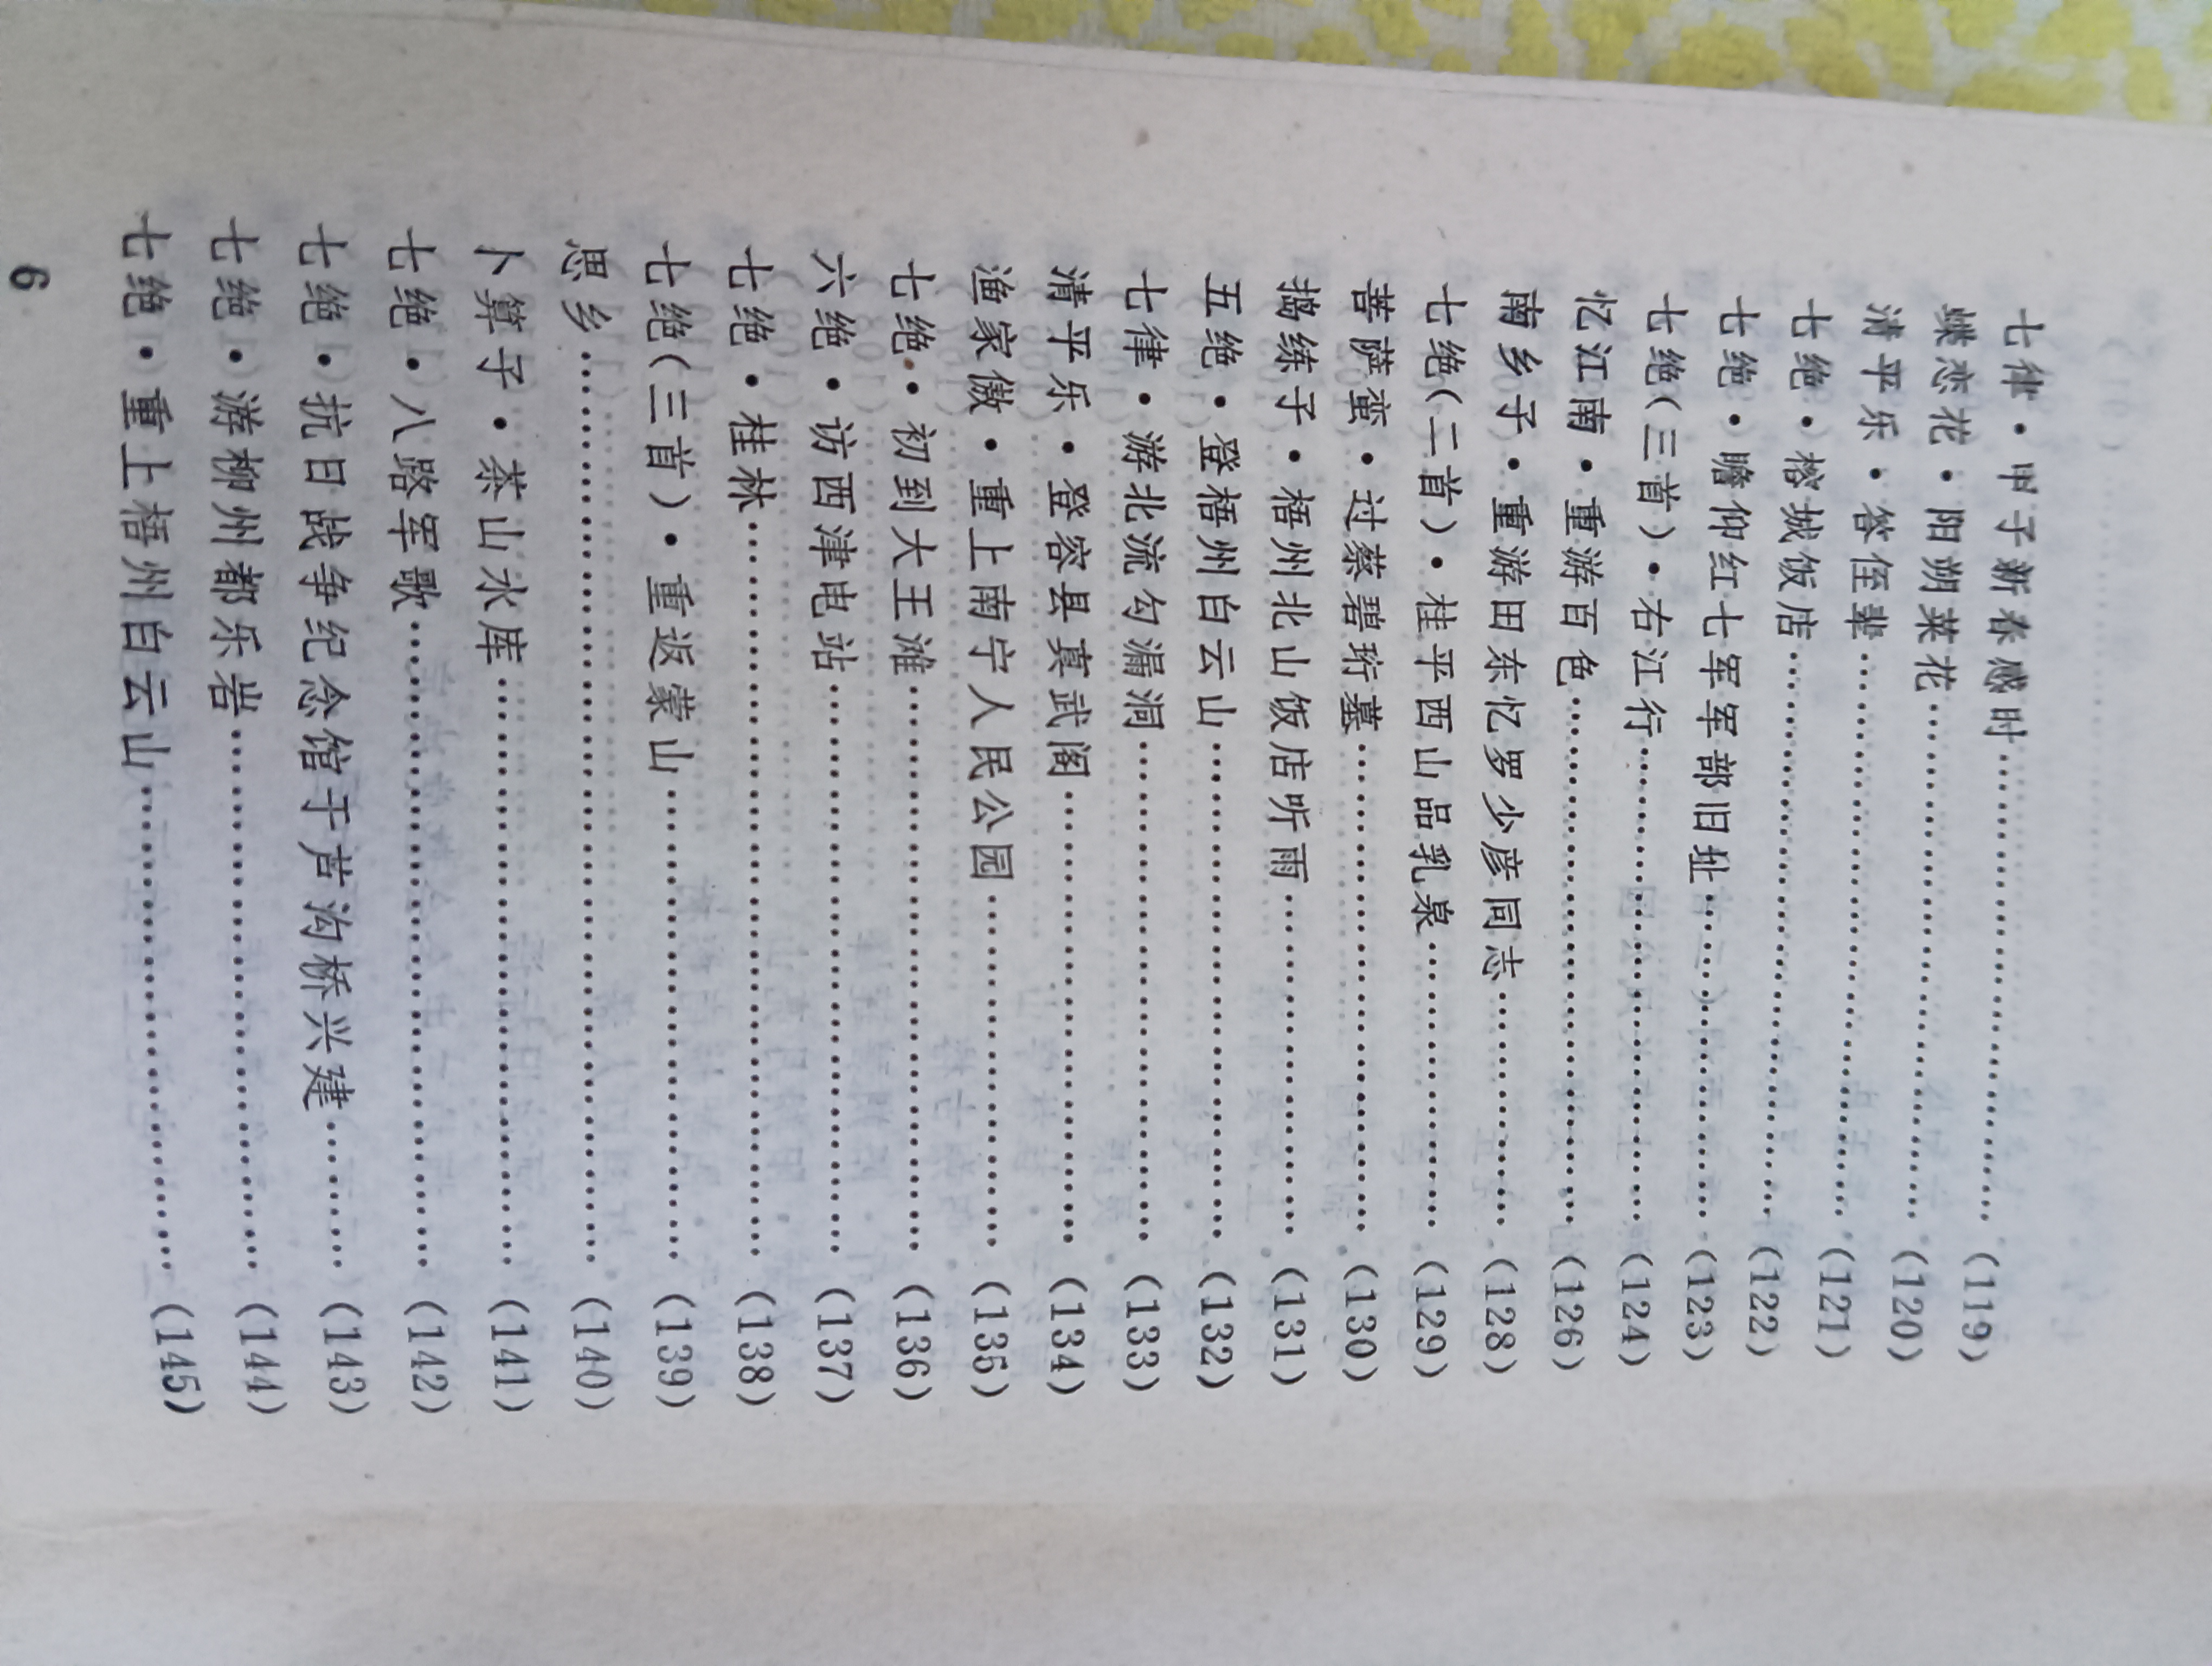 七律·甲子新春感时……………………………(119)
蝶恋花·阳朔菜花……………………………(120)
清平乐·答侄辈……………………………(121)
七绝·榕城饭店……………………………(122)
七绝·瞻仰红七军军部旧址……………………(123)
七绝(三首)·右江行……………………………(124)
忆江南·重游百色……………………………(126)
南乡子·重游田东忆罗少彦同志………………(128)
七绝(二首)·桂平西山品乳泉…………………(129)
菩萨蛮·过蔡碧珩墓……………………………(130)
捣练子·梧州北山饭店听雨……………………(131)
五绝·登梧州白云山……………………………(132)
七律·游北流勾漏洞……………………………(133)
清平乐·登容县真武阁…………………………(134)
渔家傲·重上南宁人民公园……………………(135)
七绝·初到大王滩………………………………(136)
六绝·访西津电站………………………………(137)
七绝·桂林………………………………………(138)
七绝(三首)·重返蒙山…………………………(139)
思乡………………………………………………(140)
卜算子·茶山水库………………………………(141)
七绝·八路军歌…………………………………(142)
七绝·抗日战争纪念馆于芦沟桥兴建…………(143)
七绝·游柳州都乐岩……………………………(144)
七绝·重上梧州白云山…………………………(145)
6